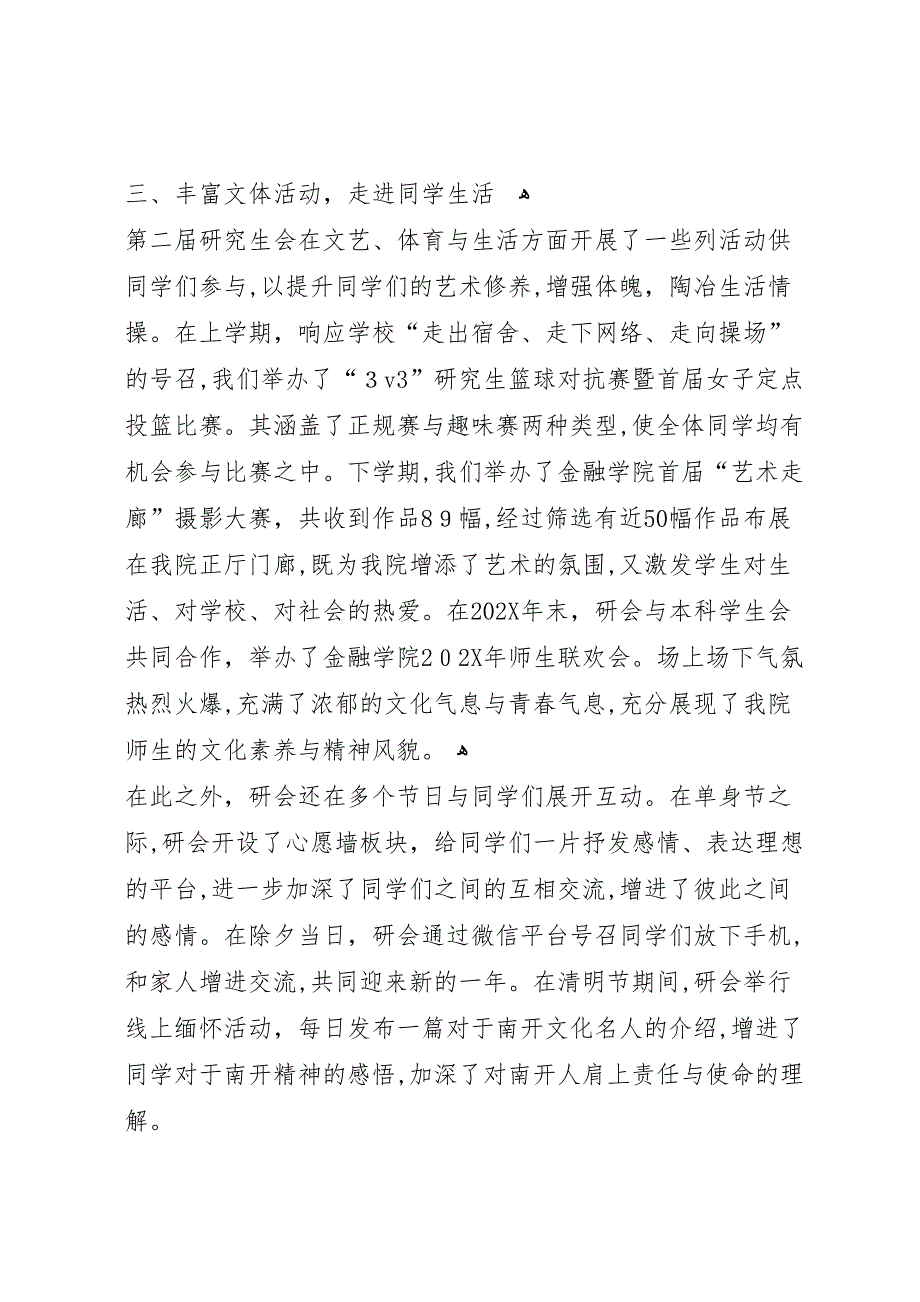 三、丰富文体活动，走进同学生活 ﻫ
第二届研究生会在文艺、体育与生活方面开展了一些列活动供
同学们参与,以提升同学们的艺术修养,增强体魄，陶冶生活情
操。在上学期，响应学校“走出宿舍、走下网络、走向操场”
的号召,我们举办了“３v3”研究生篮球对抗赛暨首届女子定点
投篮比赛。其涵盖了正规赛与趣味赛两种类型,使全体同学均有
机会参与比赛之中。下学期,我们举办了金融学院首届“艺术走
廊”摄影大赛，共收到作品8９幅,经过筛选有近50幅作品布展
在我院正厅门廊,既为我院增添了艺术的氛围,又激发学生对生
活、对学校、对社会的热爱。在202X年末，研会与本科学生会
共同合作，举办了金融学院2０2X年师生联欢会。场上场下气氛
热烈火爆,充满了浓郁的文化气息与青春气息,充分展现了我院
师生的文化素养与精神风貌。 ﻫ
在此之外，研会还在多个节日与同学们展开互动。在单身节之
际,研会开设了心愿墙板块，给同学们一片抒发感情、表达理想
的平台,进一步加深了同学们之间的互相交流,增进了彼此之间
的感情。在除夕当日，研会通过微信平台号召同学们放下手机,
和家人增进交流,共同迎来新的一年。在清明节期间,研会举行
线上缅怀活动，每日发布一篇对于南开文化名人的介绍,增进了
同学对于南开精神的感悟,加深了对南开人肩上责任与使命的理
解。